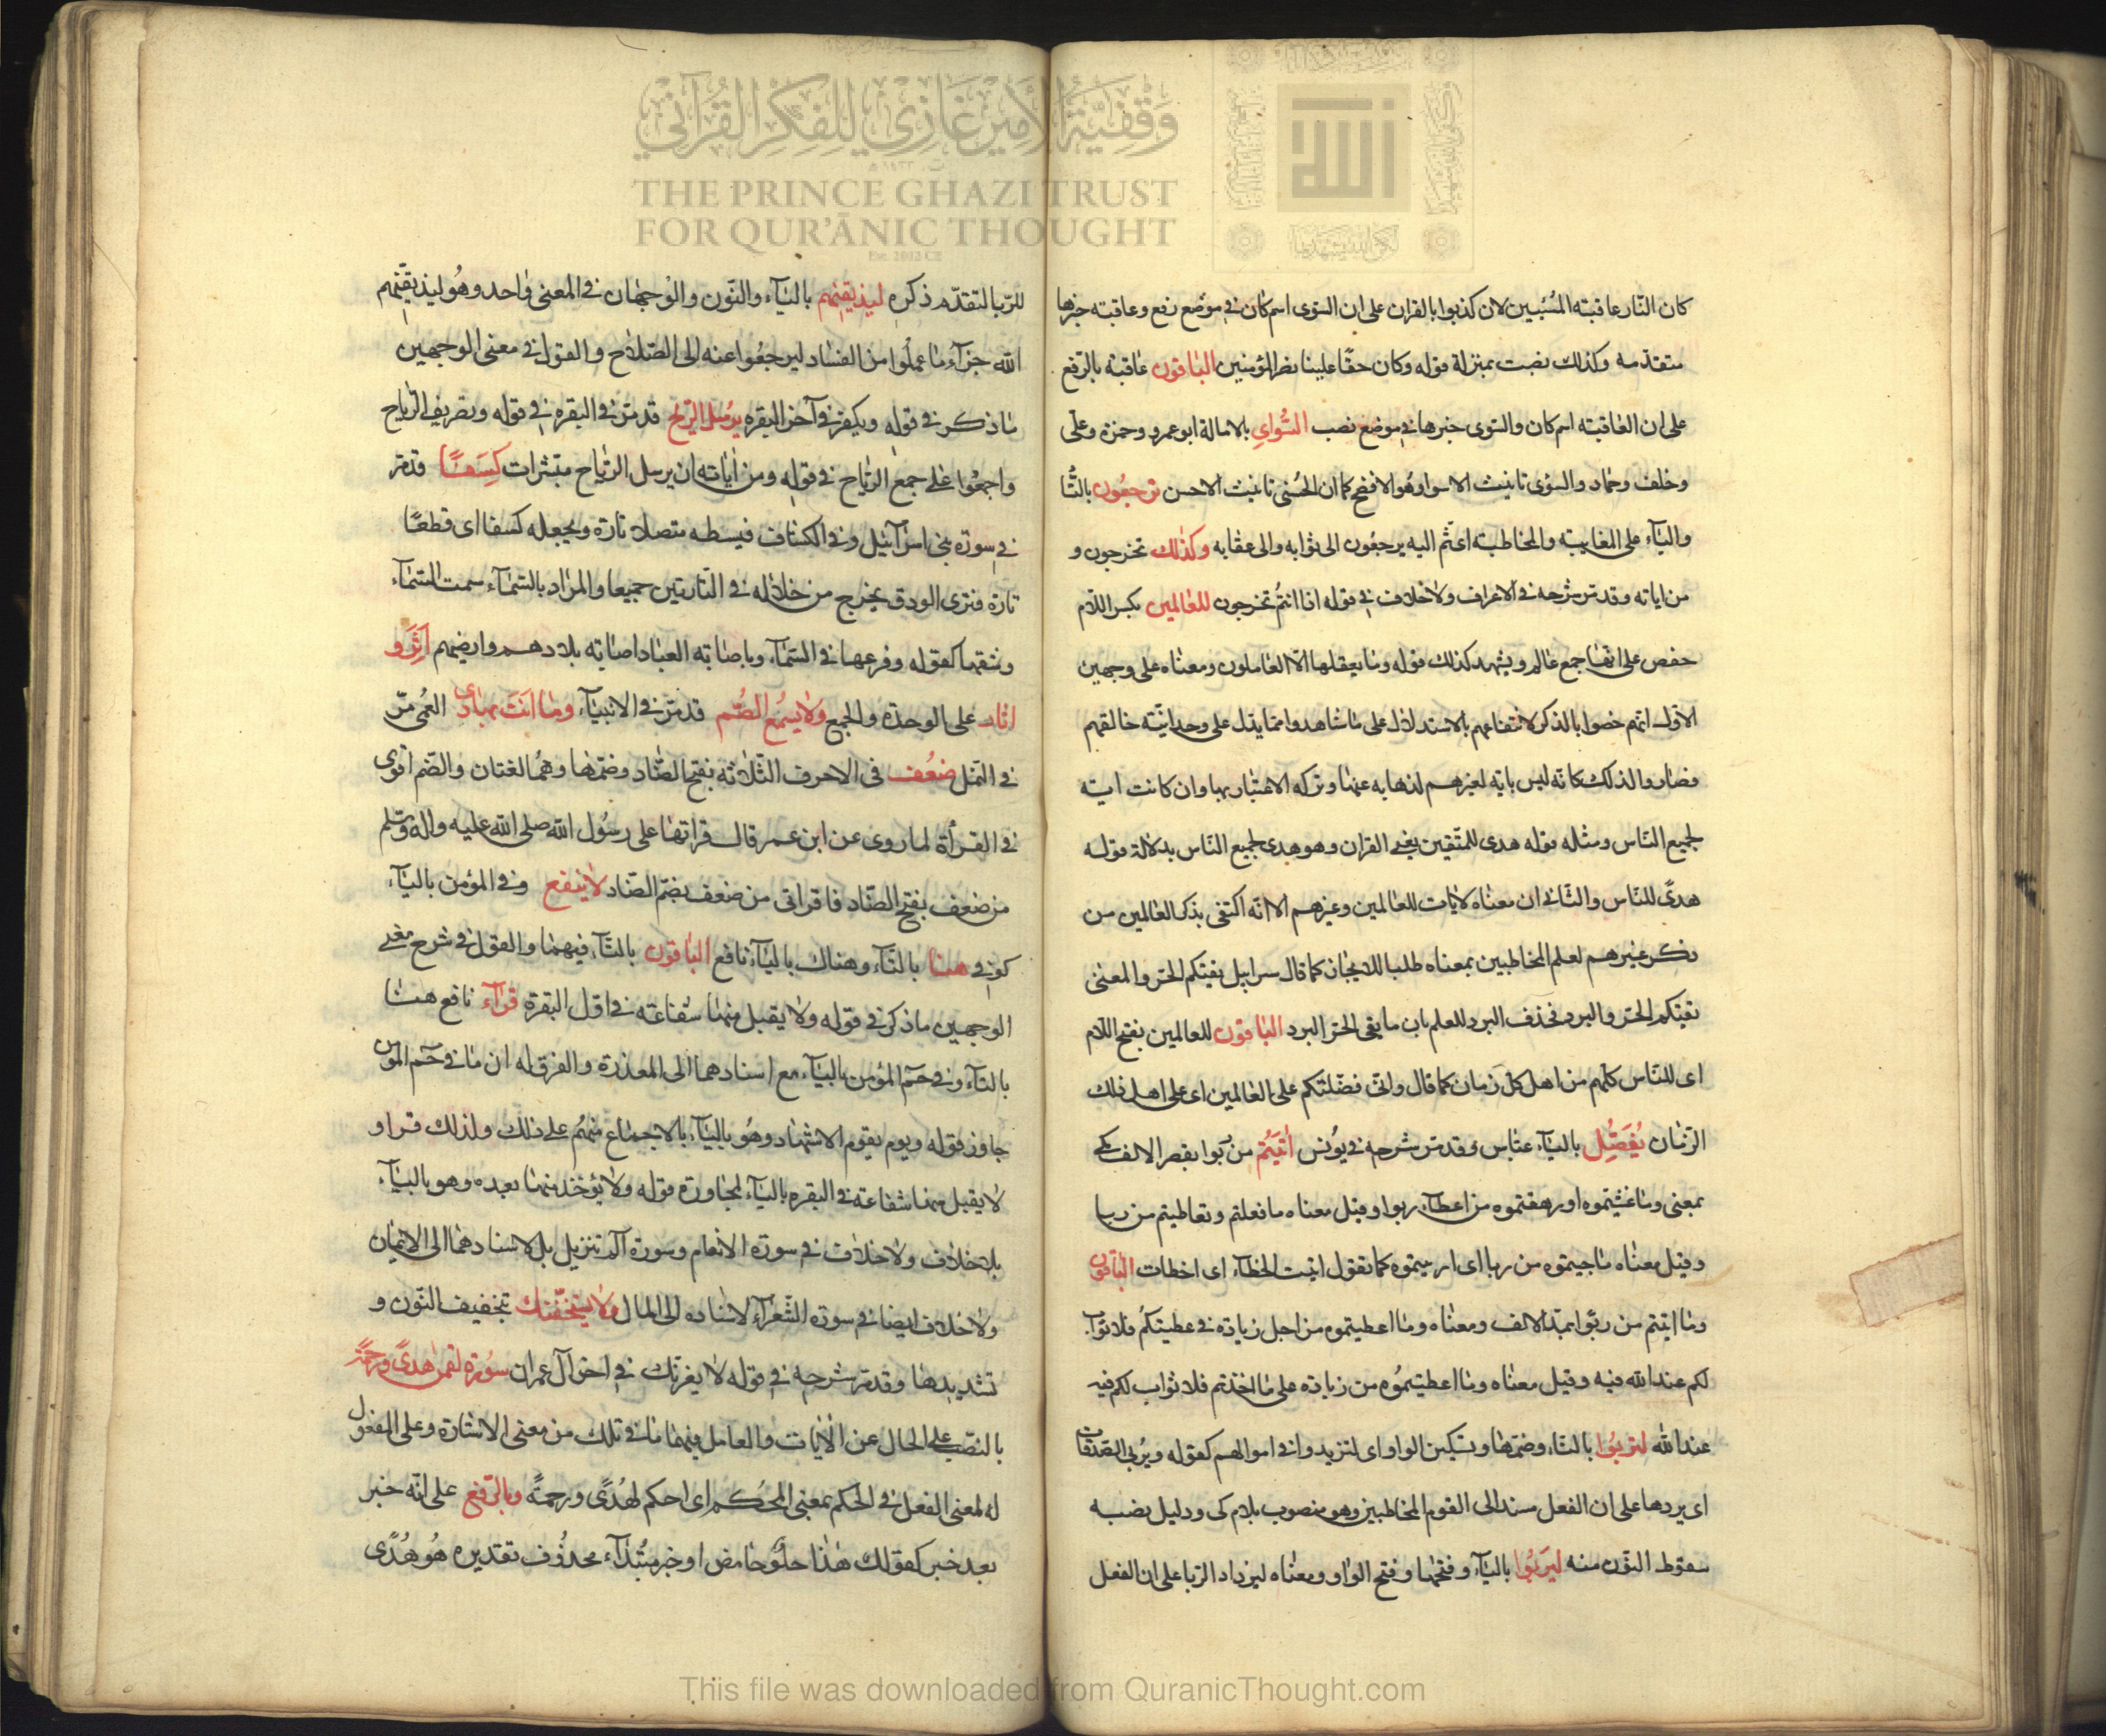 كان النّار عاقبته المُسُيئين لان كذبوا بالقران على ان السّوى اسم كان فى موضع رفع وعاقبته خبرها
متقدّمه وكذلك نصبت بمنزلة قوله وكان حقًا علينا نصر المؤمنين الباقون عاقبة بالرّفع
على ان العاقبته اسم كان والسّوى خبرها فى موضع نصب السُّواى بالامالة ابو عمرو وحمزة وعلى
وخلف وحماد والسوى تانيث الاسوا وهُو الافتح كما ان الحُسنى تانيث الاحسن ترجعُون بالتّا
واليآء على المغايبته والمخاطبته اى ثم اليه يرجعُون الى ثوابه والى عقابه وكذلك تخرجون و
من اياته وقد مرّ شرحه فى الاعراف ولا خلاف فى قوله اذا انتمُ تخرجون للعالمين بكسر اللّام
حفص على انّها جمع عالم ويشهد كذلك قوله وما يعقلها الّا العاملون ومعناه على وجهين
الاوّل انهم خصوا بالذكر لانتفاعهم بالاستدلال على ما شاهدوا مما يدل على وحدانيّته خالقهم
فصار والذلك كانّه ليس باية لغيرهم لذهابه عنها وتركه الاعتبار بها وان كانت اية
لجميع النّاس ومثله قوله هدى للمتّقين يعنى القران وهو هدى لجميع النّاس بدلالة قوله
هدىً للنّاس والثّانى ان معناه لايات للعالمين وغيرهم الا انّه اكتفى بذكر العالمين من
ذكر غيرهم لعلم المخاطبين بمعناه طلبا للايجاز كما قال سرابيل تقيكم الحر والمعنى
تقيكم الحر والبرد فحذف البرد للعلم بان ما يقى الحر البرد الباقون للعالمين بفتح اللّام
اى للنّاس كلّهم من اهل كل زمان كما قال وانّى فضّلتكم على العالمين اى على اهل ذلك
الزّمان يُفَصِّل باليآء عبّاس وقد مرّ شرحه فى يُونس اتَيتُم من ربوا بقصر الالف
بمعنى وما غشيتموه او رهقتموه من اعطآء ربوا وقيل معناه ما فعلتم وتعاطيتم من ربا
وقيل معناه ما جيتموه من ربا اى ارجيتموه كما تقول اتيت الخطآء اى اخطات الباقون
وما اتيتم من ربّوا بمدّ الالف ومعناه وما اعطيتموه من اجل زيادة فى عطيتكم فلا ثواب
لكم عند الله فيه وقيل معناه وما اعطيتمُوه من زيادة على ما اخذتم فلا ثواب لكم فيه
عند الله لتربُوا بالتّاء وضمّها وتسكين الواو اى لتزيدوا فى اموالهم كقوله ويُربى الصّدقات
اى يردها على ان الفعل مسند الى القوم المخاطبين وهو منصوب بلام كى ودليل نصبه
سقوط النّون منه ليَربُوا باليآء وفتحها وفتح الواو ومعناه ليزداد الرّبا على ان الفعل
للرّبا لتقدّم ذكره ليذيقنهم باليآء والنّون والوجهان فى المعنى واحد وهُو ليذيقنّهم
الله جزآء ما عملُوا من الفساد ليرجعُوا عنه الى الصّلاح والقول فى معنى الوجهين
ما ذكر فى قوله ويكفر فى آخر البقره يرسُل الريح قد مرّ فى البقره فى قوله وتصريف الرّياح
واجمعُوا على جمع الرّياح فى قوله ومن اياته ان يرسل الرّياح مبشرات كِسَفًا قد مرّ
فى سورة بنى اسرآئيل وفى الكشاف فيبسطه متصلا تارة ويجعله كسفا اى قطعًا
تارة فترى الودق يخرج من خلاله فى التّارتين جميعا والمراد بالسّمآء سمت السّمآء
وشقها كقوله وفرعها فى السّمآء وباصابة العباد اصابة بلادهم وارضيهم اَثَر و
اثار على الوحدة والجمع ولا يسمُع الصُّم قد مرّ فى الانبيآء وما اَنتَ بهادى العُمى مرّ
فى النّمل ضعُف فى الاحرف الثّلاثة بفتح الضّاد وضمّها وهُما لغتان والضّم اقوى
فى القرأة لما روى عن ابن عمر قال قراتها على رسُول الله صلى الله عليه واله وسلّم
من ضعف بفتح الضّاد فاقرانى من ضعف بضمّ الضّاد لا ينفع وفى المؤمن باليآء
كوفى ههنا بالتّآء وهناك باليآء نافع الباقون بالتّآء فيهما والقول فى شرح معنى
الوجهين ما ذكر فى قوله ولا يقبل منها شفاعته فى اوّل البقرة قرآء نافع هنا
بالتآء وفى حم المؤمن باليآء مع اسنادهما الى المعذرة والفرق له ان ما فى حم المومن
جاوز قوله ويوم يقوم الاشهاد وهُو باليآء بالاجماع منهُم على ذلك ولذلك قراو
لا يقبل منها شفاعة فى البقره باليآء لمجاورة قوله ولا يؤخذ منها بعده وهو باليآء
بلا خلاف ولا خلاف فى سورة الانعام وسورة الم تنزيل بل لاسنادهما الى الايمان
ولا خلاف ايضا فى سورة الشّعرآء لاسناده الى المال ولا يستخفّنك بتخفيف النّون و
تشديدها وقد مرّ شرحه فى قوله لا يغرّنك فى اخر آل عمران سورة لقمن هدىً ورحمةً
بالنصب على الحال عن الايات والعامل فيهما ما فى تلك من معنى الاشارة وعلى المفعول
له لمعنى الفعل فى الحكم بمعنى المحُكم اى احكم لهُدًى ورحمةً وبالرّفع على انّه خبر
بعد خبر كقولك هٰذا حلوٌ حامض او خبر مبُتدآء محذُوف تقديره هُو هُدًى
وقفية الأمير غازي للفكر القرآني
THE PRINCE GHAZI TRUST
FOR QUR'ĀNIC THOUGHT
Est. 2012 CE
This file was downloaded from QuranicThought.com